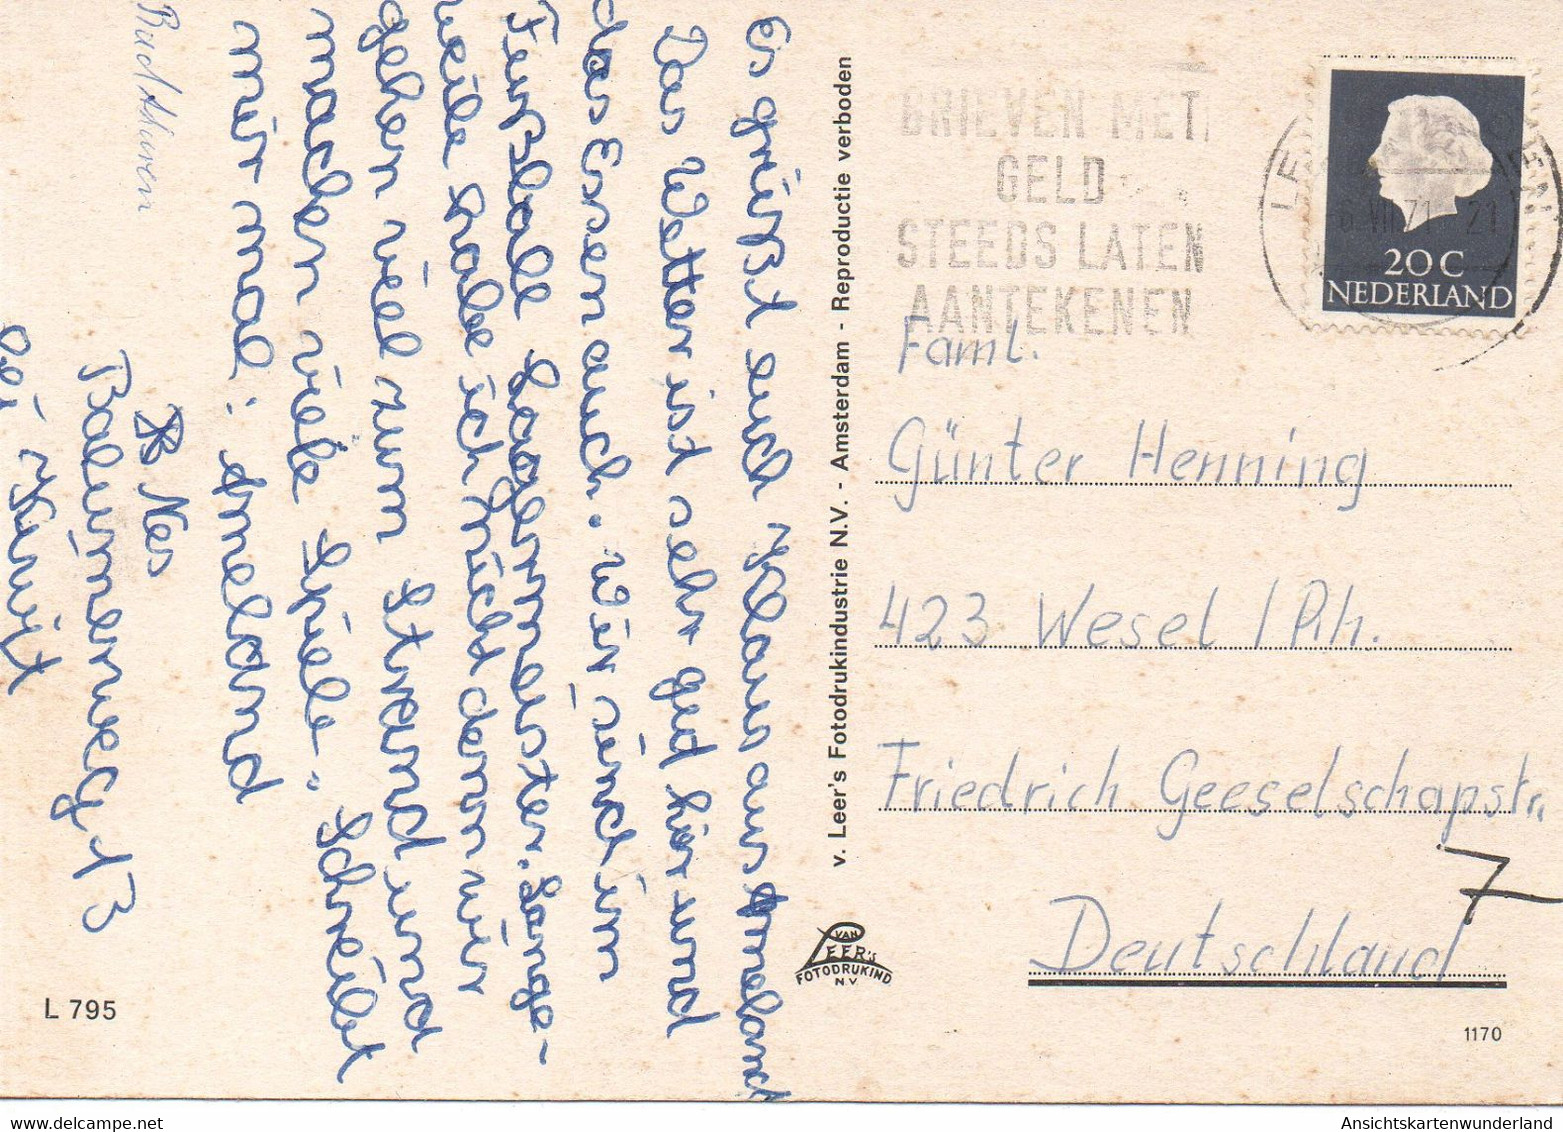 Es grüßt euch Klaus aus Ameland
Das Wetter ist sehr gut hier und
das Essen auch. Wir sind im
Fußball Lagermeister. Lange-
weile habe ich nicht denn wir
gehen viel zum Strand und
machen viele Spiele. Schreibt
mir mal: Ameland
Nes
Balumerweg 13
bei
v. Leer's Fotodrukindustrie N.V. - Amsterdam - Reproductie verboden
BRIEVEN MET
GELD
STEEDS LATEN
AANTEKENEN
6.VII.71 21
20 C
NEDERLAND
Faml.
Günter Henning
423 Wesel / Rh.
Friedrich Geeselschapstr.
7
Deutschland
VAN
LEER'S
FOTODRUKIND.
N.V.
L 795
1170
Ansichtskartenwunderland